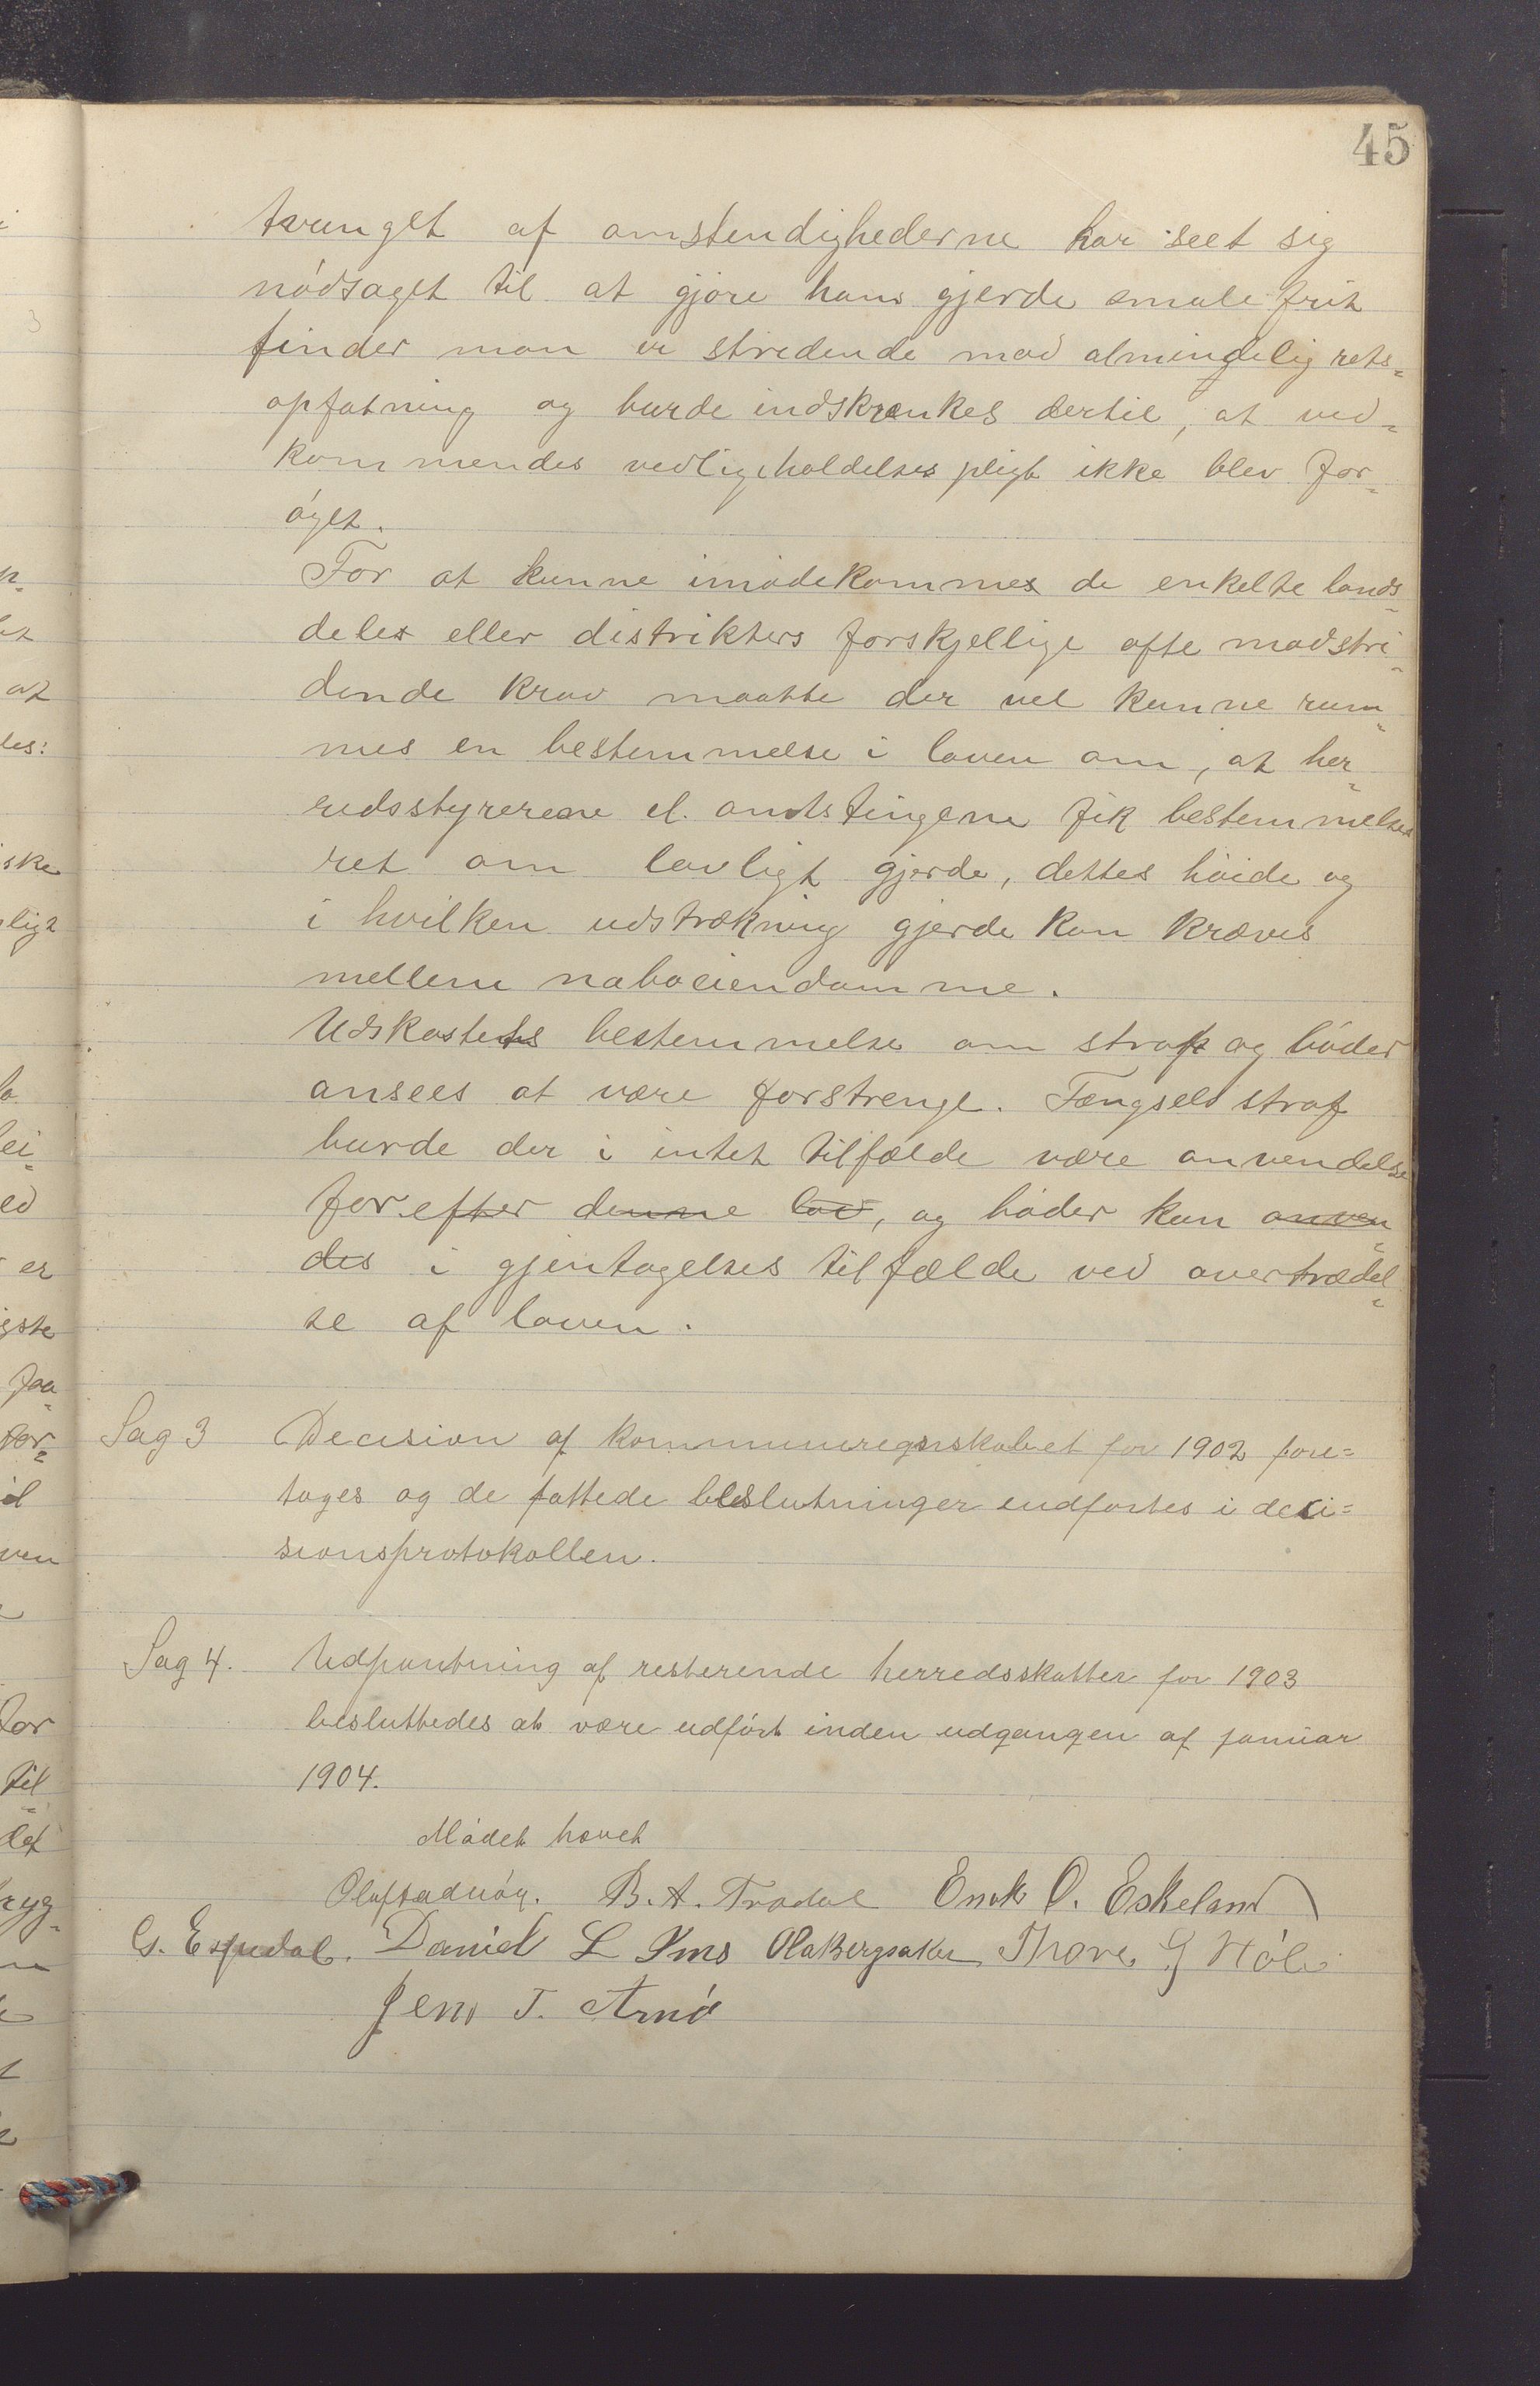 45
tvunget af omstendighederne har seet sig
nódsaget til at gjóre hans gjerde smale frit
finder man er stredende mod almindelig rets=
opfatning og burde indskrænkes dertil, at ved=
kommendes vedligeholdelses pligt ikke blev for=
óget.
For at kunne imódekommes de enkelte lands=
deles eller distrikters forskjellige ofte modstri=
dende krav maatte der vel kunne rum=
mes en bestemmelse i loven om, at her=
redsstyrerene el. amtstingene fik bestemmelses
ret om lovligt gjerde, dettes hóide og
i hvilken udstrækning gjerde kan kræves
mellem naboeiendomme.
Udskastets bestemmelse om straf og bóder
ansees at være forstrenge. Fængsels straf
burde der i intet tilfælde være anvendelse
for efter denne lov, og bóder kun anven=
des i gjentagelses tilfælde ved overtrædel=
se af loven.
Sag 3 Decision af kommuneregnskabet for 1902 fore=
toges og de fattede beslutninger indfórtes i deci=
sionsprotokollen.
Sag 4. Udpantning af resterende herredsskatter for 1903
besluttedes at være udfórt inden udgangen af januar
1904.
Módet hævet
Oluf Sadnóy. B. A. Trodal Enok O. Eskeland
G. Espedal. Daniel L Ims Ola Bergsaker Thore G Hóle
Jens T. Arnó